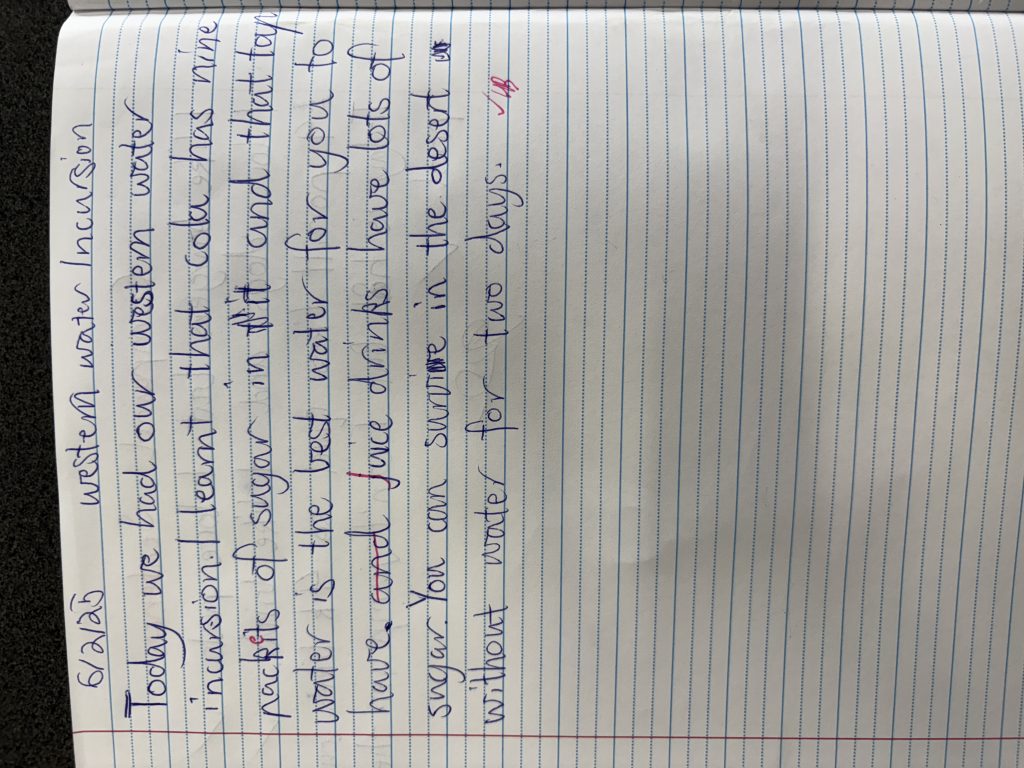 6/2/25 western water Incursion
Today we had our western water
incursion. I learnt that cola has nine
packets of sugar in it and that tap
water is the best water for you to
have. and juice drinks have lots of
sugar. You can survive in the desert
without water for two days.